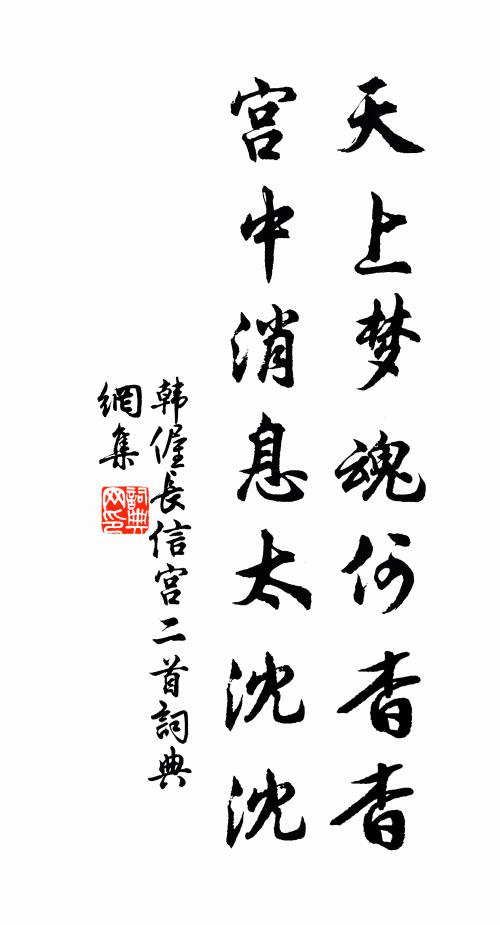 天上梦魂何杳杳
宫中消息太沈沈
韩偓長信宫二首詞典
網集
詞典网印